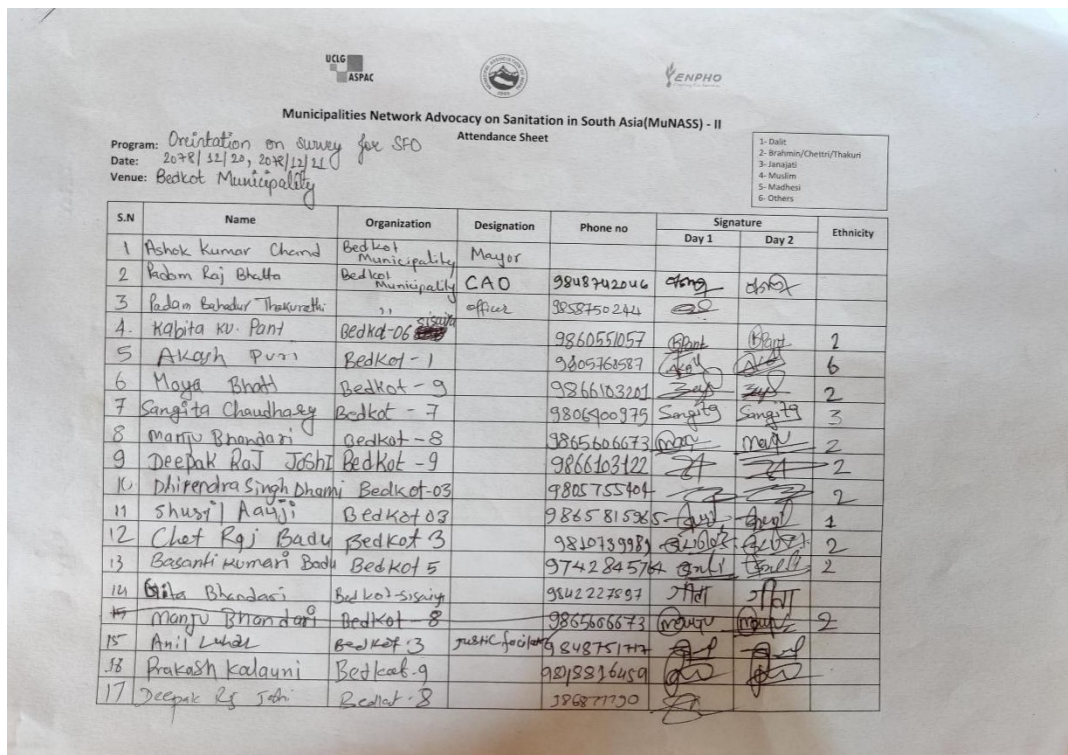 UCLG
ASPAC
ENPHO
Municipalities Network Advocacy on Sanitation in South Asia(MuNASS) - II
Attendance Sheet
Program: Oreintation on survey for SFO
Date: 2078/12/20, 2078/12/21
Venue: Bedkot Municipality
1- Dalit
2- Brahmin/Chettri/Thakuri
3- Janajati
4- Muslim
5- Madhesi
6- Others
S.N Name Organization Designation Phone no Signature Day 1 Day 2 Ethnicity
1 Ashok Kumar Chand Bedkot Municipality Mayor
2 Padam Raj Bhatta Bedkot Municipality CAO 9848742046
3 Padam Bahadur Thakurathi ,, officer 9858750244
4. Kabita KU. Pant Bedkot-06 sisaiya 9860551057 BPant BPant 2
5 Akash Puri Bedkot - 1 9805760587 6
6 Maya Bhatt Bedkot - 9 9866103201 2
7 Sangita Chaudhary Bedkot - 7 9806400975 Sangita Sangita 3
8 Manju Bhandari Bedkot - 8 9865606673 Manju Manju 2
9 Deepak RaJ JoShI Bedkot - 9 9866103122 2
10 Dhirendra Singh Dhami Bedkot-03 9805755404 2
11 Shusil Aauji Bedkot 03 9865815965 1
12 Chet Raj Badu Bedkot 3 9810739989 2
13 Basanti Kumari Badu Bedkot 5 9742845764 2
14 Gita Bhandari Bedkot-sisaiya 9842227897 गीता गीता
15 Manju Bhandari Bedkot - 8 9865606673 Manju Manju 2
15 Anil Luhar Bedkot :3 9848751717
16 Prakash Kalauni Bedkot-9 9818816459
17 Deepak Rj Joshi Bedkot - 8